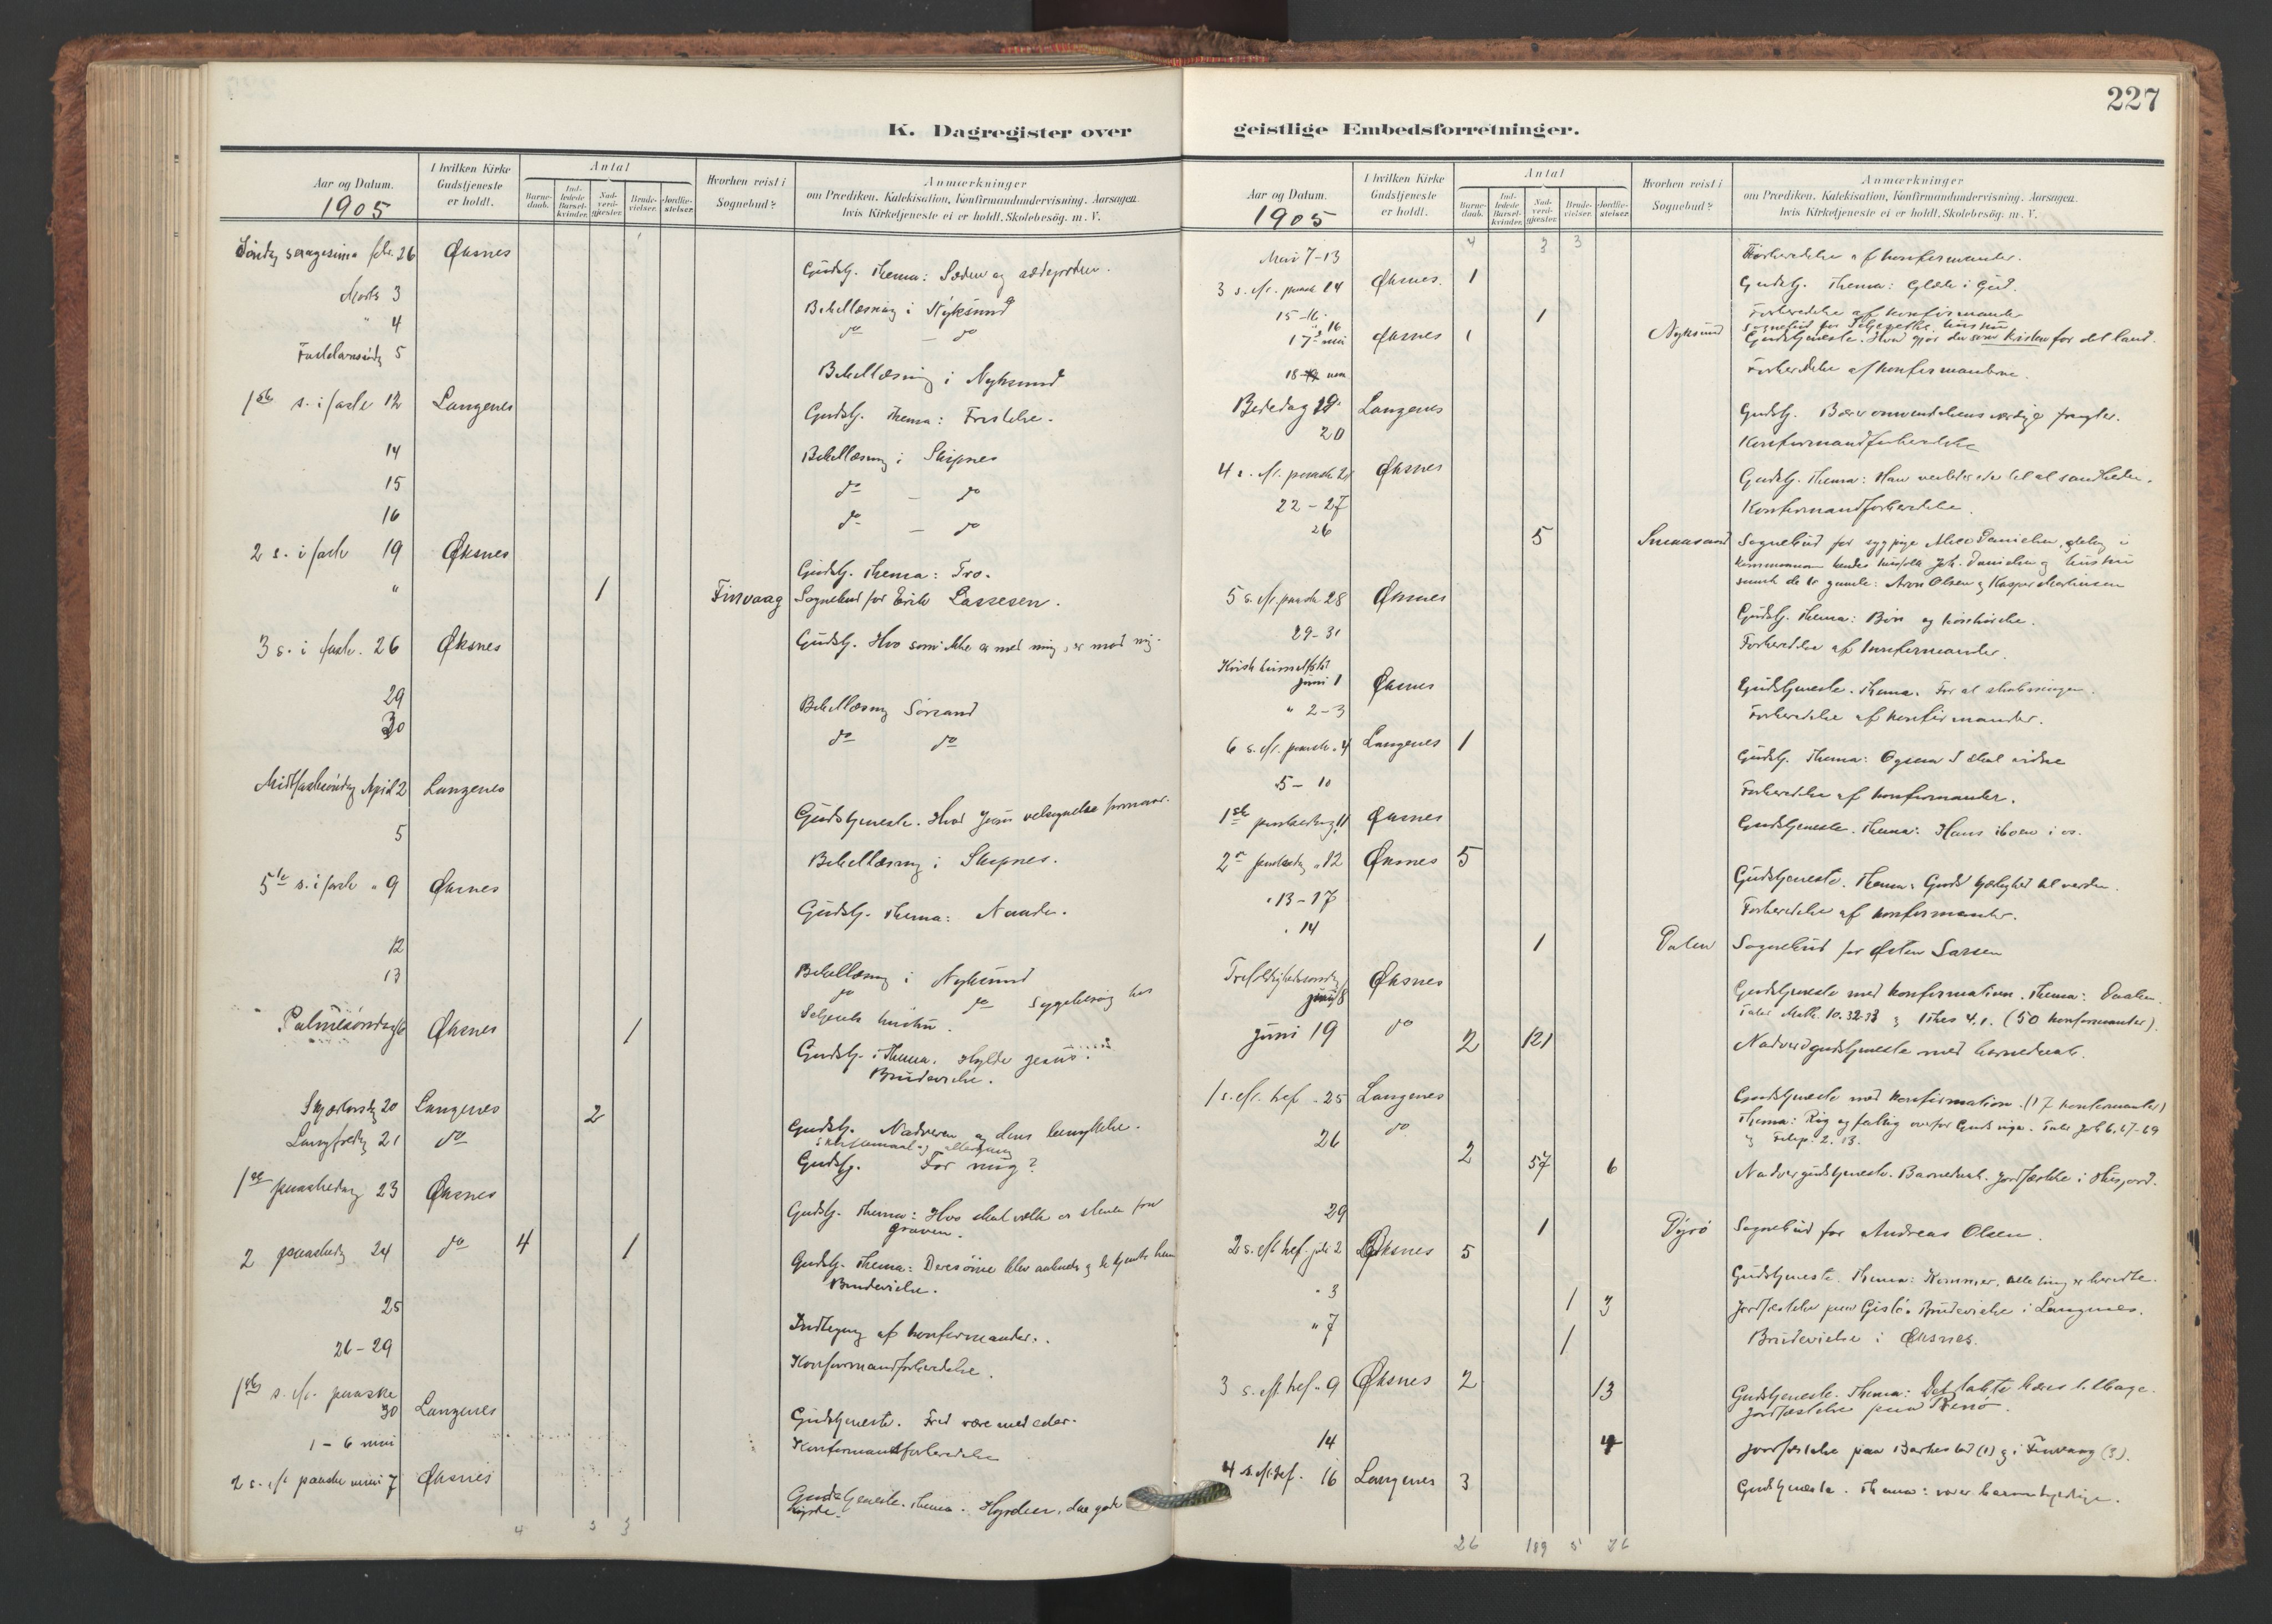 K. Dagregister over
Aar og Datum.
1905
I hvilken Kirke Gudstjeneste er holdt.
Antal
Barnedaab.
Indledede Barselkvinder.
Nadverdgjester.
Brudevielser.
Jordfæstelser.
Hvorhen reist i Sognebud?
Anmærkninger
om Prædiken, Katekisation, Konfirmandundervisning. Aarsagen
hvis Kirketjeneste ei er holdt. Skolebesög. m. V.
Söndag sexagesima febr. 26 Øksnes Gudstj. Thema: Sæden og
Marts 3 Bibellæsning i Nyksund
" 4 do — do
Fastelavnsöndg 5 Bibellæsning i Nyksund
1ste s. i faste 12 Langenes Gudstj. Thema: Fristelse.
14 Bibellæsning i Skipnes
15 do — do
16 do — do
2 s. i faste 19 Øksnes Gudstj. Thema: Tro.
" 1 Finvaag Sognebud for Erik Lassesen.
3 s. i faste. 26 Øksnes Gudstj. Hvo som ikke er med mig, er mod mig.
29 Bibellæsning Sörsand
30 do do
Midtfastesöndag April 2 Langenes Gudstjeneste. Hvad Jesu velsignelse formaar.
5 Bibellæsning i Skipnes.
5te s. i faste " 9 Øksnes Gudstj. Thema: Naade.
12 Bibellæsning i Nyksund
13 do do Sygebesög hos
hustru.
Palmesöndag 16 Øksnes 1 Gudstj. Thema. Hylde Jesus.
Brudevielse.
Skjærtorsdg 20 Langenes 2 Gudstj. Nadveren og dens benyttelse.
Skriftemaal og altergang
Langfredg 21 do Gudstj. For mig?
1ste paaskedag 23 Øksnes Gudstj. Thema: Hvo skal vælte os stenen fra
graven.
2 paaskedg 24 do 4 1 Gudstj. Thema: Deres öine blev aabnede og de kjendte ham
Brudevielse.
25 Indtegning af konfirmander.
26-29 Konfirmandforberedelse.
1ste s. eft. paaske
30 Langenes Gudstjeneste. Fred være med eder.
1-6 mai Konfirmandforberedelse
2 s. eft paaske mai 7 Øksnes Gudstjeneste. Thema. Hyrden, den gode
hyrde.
4 3 3
227
geistlige Embedsforretninger.
Aar og Datum.
1905
I hvilken Kirke Gudstjeneste er holdt.
Antal
Barnedaab.
Indledede Barselkvinder.
Nadverdgjester.
Brudevielser.
Jordfæstelser.
Hvorhen reist i Sognebud?
Anmærkninger
om Prædiken, Katekisation, Konfirmandundervisning. Aarsagen
hvis Kirketjeneste ei er holdt. Skolebesög. m. V.
4 3 3
Mai 7-13 Forberedelse af konfirmander.
3 s. eft. paask 14 Øksnes. 1 Gudstj. Thema: Glæde i Gud.
15-16 Forberedelse af konfirmander
" 16 1 Nyksund Sognebud for hustru
17de mai Øksnes 1 Gudstjeneste. Hvad gjör du som kristen for dit land.
18 mai Forberedelse af konfirmanderne.
Bededag 19 Langenes Gudstj. Bærer omvendelsens værdige frugter.
20 Konfirmandforberedelse
4 s. eft. paaske 21 Øksnes Gudstj. Thema: Han veileder eder til al sandheden.
22-27 Konfirmandforberedelse.
26 5 Smaasund Sognebud for syg pige Danielsen,
Joh. Danielsen og hustru
samt de to gamle: Aron Olsen og Kasper Martinsen
5 s. eft. paaske 28 Øksnes Gudstj. Thema: Bön og bönhörelse.
29-31 Forberedelse af konfirmander.
Kristi himmelfstd
juni 1 Øksnes Gudstjeneste. Thema.
" 2-3 Forberedelse af konfirmander.
6 s. eft. paaske. 4 Langenes 1 Gudstj. Thema: Ogsaa I skal vidne
5-10 Forberedelse af konfirmander.
1ste pinsedag 11 Øksnes Gudstjeneste. Thema: Hans iboen i os.
2n pinsedg " 12 Øksnes 5 Gudstjeneste. Thema: Guds kjærlighed til verden.
" 13-17 Forberedelse af konfirmander.
" 14 1 Dalen Sognebud for Østen Larsen
Trefoldighedssöndg
juni 18 Øksnes Gudstjeneste med konfirmation. Thema: Daaben.
Tale Math. 10.32-33 og 1 Thes 4.1. (50 konfirmanter).
juni 19 do 2 121 Nadverdgudstjeneste med barnedaab.
1 s. eft. tref. " 25 Langenes Gudstjeneste med konfirmation. (17 konfirmanter)
Thema: Rig og fattig overfor Guds rige. Tale Joh 6.67-69
og Filip. 2.13.
26 do 2 57 6 Nadvergudstjeneste. Barnedaab. Jordfæstelse i
29 1 Dyrö Sognebud for Andreas Olsen.
2 s. eft tref. juli 2 Øksnes 5 Gudstjeneste. Thema: Kommer, alle ting er beredte.
" 3 1 3 Jordfæstelse paa Gislö. Brudevielse i Langenes.
" 7 1 Brudevielse i Øksnes.
3 s. eft. tref. " 9 Øksnes 2 13 Gudstjeneste. Thema: Det tabte bæres tilbage.
Jordfæstelse paa
14 4 Jordfæstelse paa Barkestad (1) og i Finvaag (3).
4 s. eft. tref. 16 Langenes 3 Gudstjeneste. Thema: værer barmhjertige.
26 189 5 26